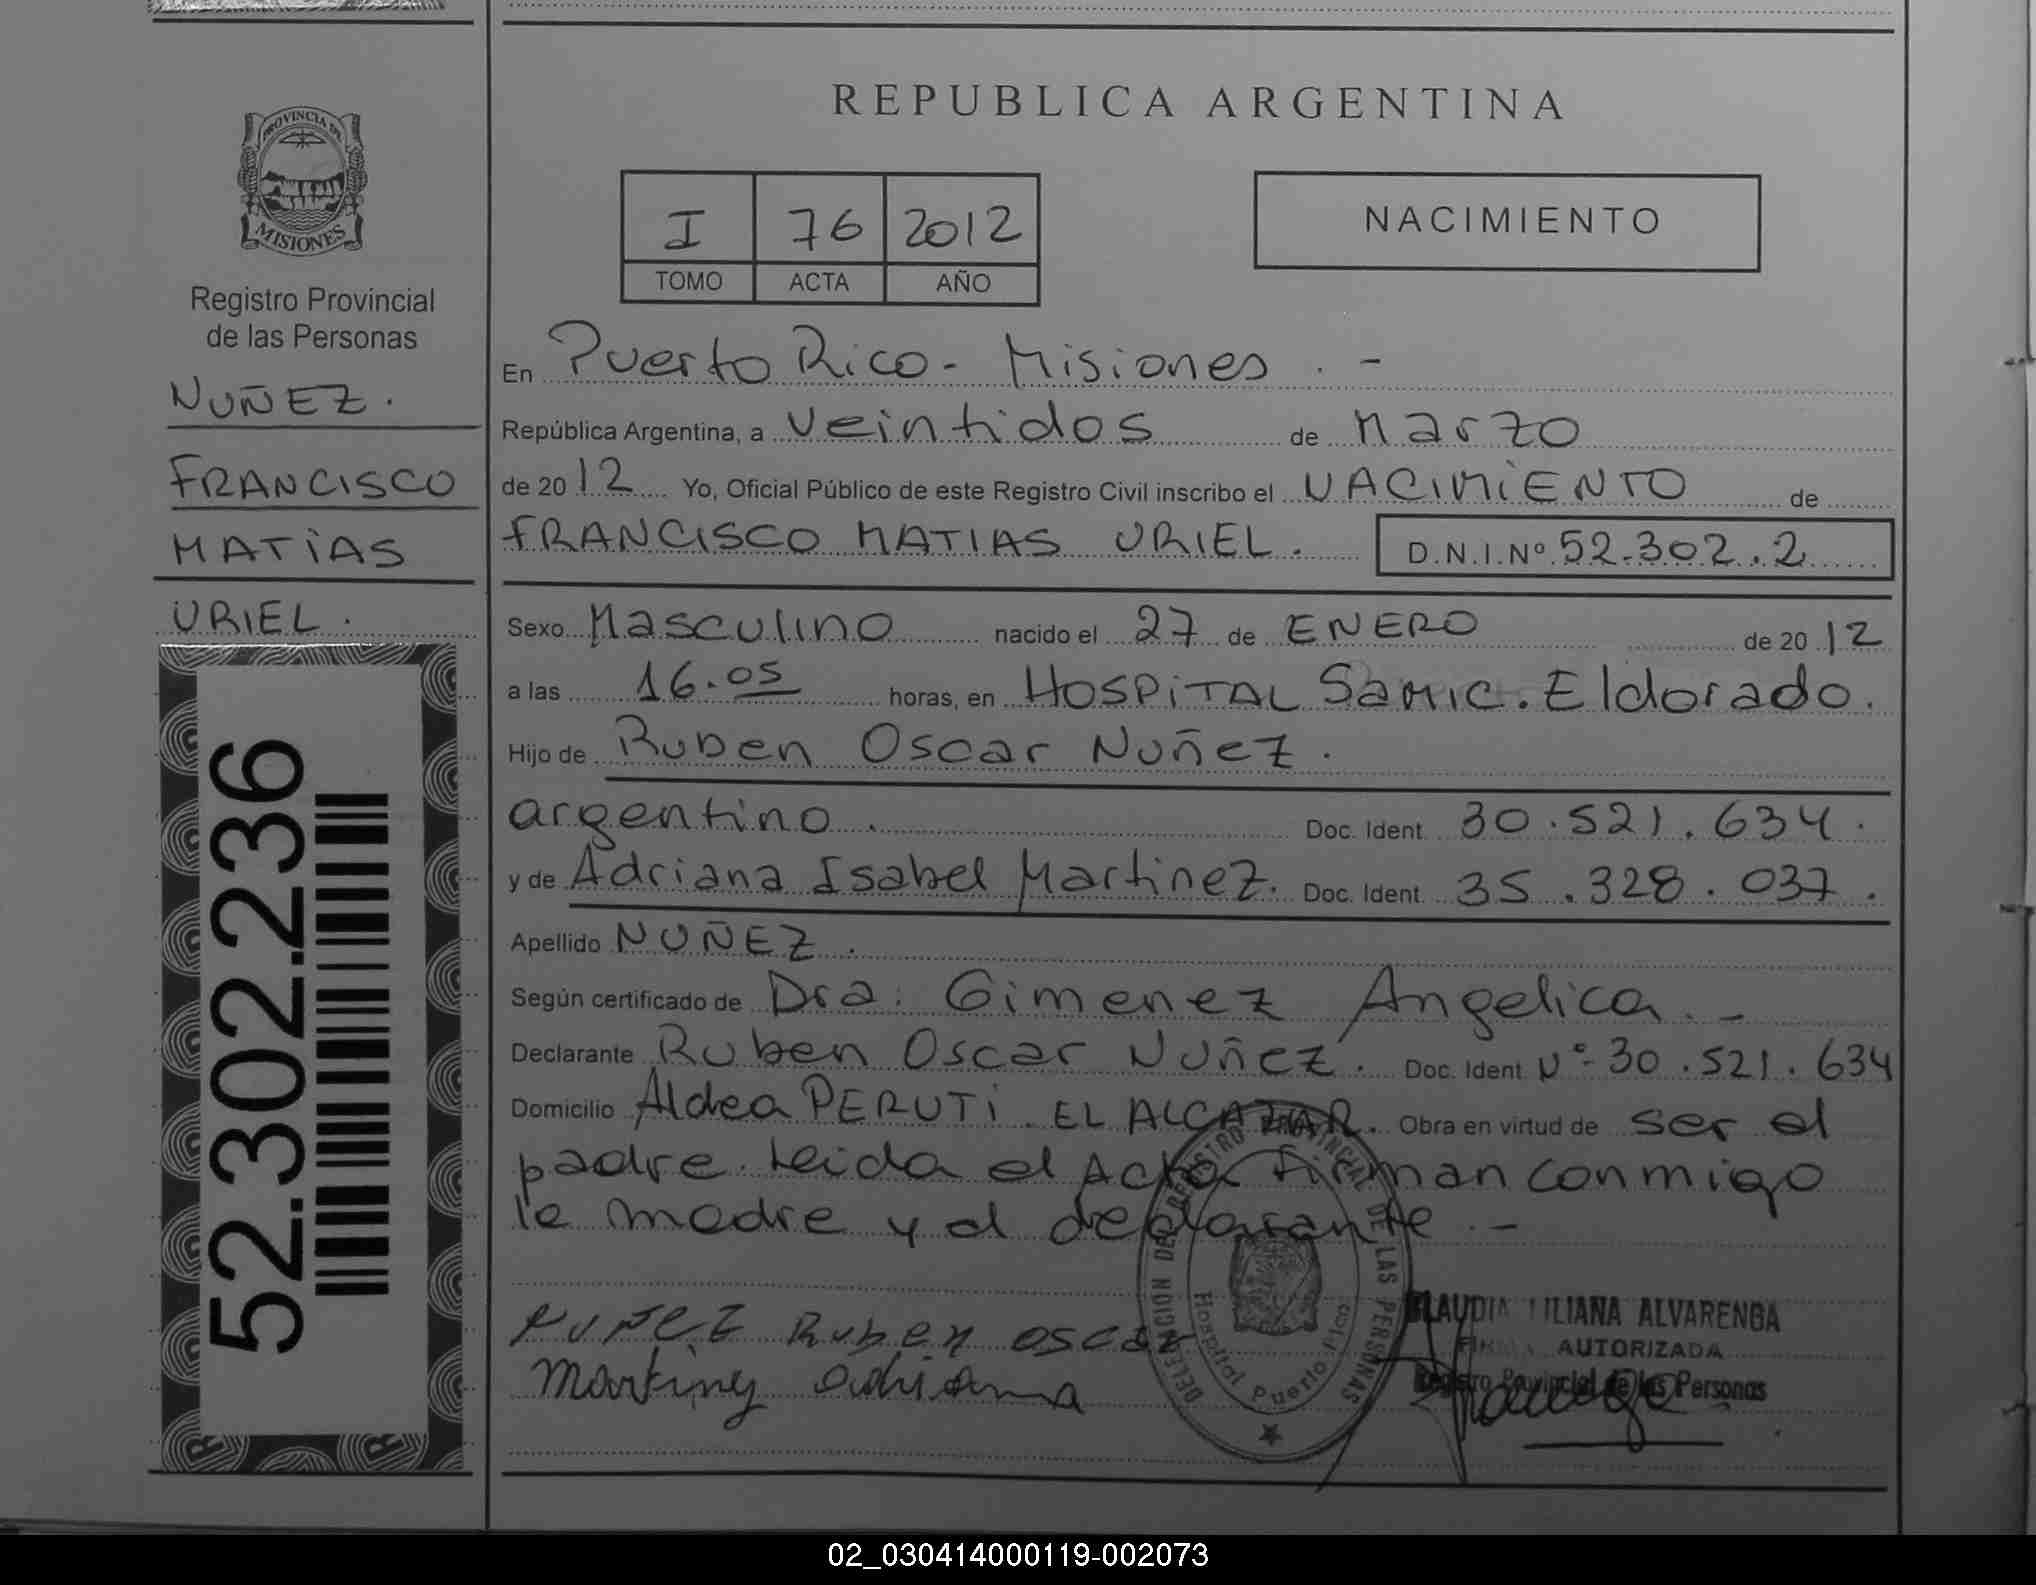 PROVINCIA DE
MISIONES
Registro Provincial
de las Personas
NUÑEZ.
FRANCISCO
MATIAS
URIEL.
52.302.236
REPUBLICA ARGENTINA
I 76 2012
TOMO ACTA AÑO
NACIMIENTO
En Puerto Rico - Misiones . -
República Argentina, a veintidos de Marzo
de 2012 Yo, Oficial Público de este Registro Civil inscribo el NACIMIENTO de
FRANCISCO MATIAS URIEL. D.N.I.Nº 52.302.2
Sexo Masculino nacido el 27 de ENERO de 2012
a las 16.05 horas, en HOSPITAL SAMIC. Eldorado.
Hijo de Ruben Oscar Nuñez.
argentino. Doc. Ident. 30.521.634.
y de Adriana Isabel Martinez. Doc. Ident. 35.328.037.
Apellido NUÑEZ.
Según certificado de Dra: Gimenez Angelica. -
Declarante Ruben Oscar Nuñez. Doc. Ident Nº 30.521.634
Domicilio Aldea PERUTI. EL ALCAZAR. Obra en virtud de ser el
padre. Leida el Acta firman conmigo
la madre y el declarante. -
NUÑEZ Ruben oscar
Martinez Adriana
DELEGACION DEL REGISTRO PROVINCIAL DE LAS PERSONAS
Hospital Puerto Rico
CLAUDIA LILIANA ALVARENGA
FIRMA AUTORIZADA
Registro Provincial de las Personas
02_030414000119-002073